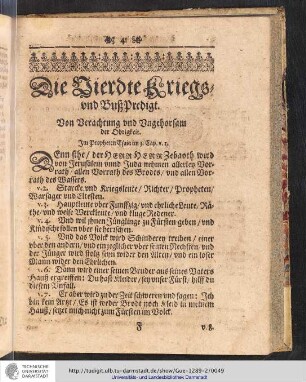 41
Die Vierdte Kriegs/
vnd BußPredigt.
Von Verachtung vnd Vngehorsam
der Obrigkeit.
Im Propheten Esaia im 3. Cap. v. 1.
DEnn sihe / der HErr HErr Zebaoth wird
von Jerusalem vnnd Juda nehmen allerley Vor-
rath / allen Vorrath des Brodts / vnd allen Vor-
rath des Wassers.
v. 2. Starcke vnd Kriegsleute / Richter / Propheten /
Warsager vnd Eltesten.
v. 3. Hauptleute vber Funfftzig / vnd ehrliche Leute. Rä-
the / vnd weise Werckleute / vnd kluge Redener.
v. 4. Vnd wil jhnen Jünglinge zu Fürsten geben / vnd
Kindische sollen vber sie herrschen.
v. 5. Vnd das Volck wird Schinderey treiben / einer
vber den andern / vnd ein jeglicher vber seinen Nechsten / vnd
der Jünger wird stoltz seyn wider den Alten / vnd ein loser
Mann wider den Ehrlichen.
v. 6. Dann wird einer seinen Bruder aus seines Vaters
Hauß ergreiffen: Du hast Kleider / sey vnser Fürst / hilff du
diesem Vnfall.
v. 7. Er aber wird zu der Zeit schweren vnd sagen: Ich
bin kein Artzt / Es ist weder Brodt noch Kleid in meinem
Hauß / setzet mich nicht zum Fürsten im Volck.
F
v. 8.
http://tudigit.ulb.tu-darmstadt.de/show/Gue-1289-270049
Universitäts- und Landesbibliothek Darmstadt